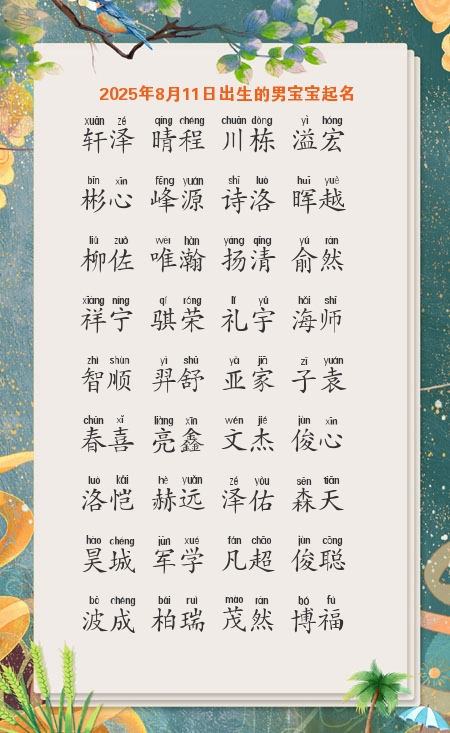 2025年8月11日出生的男宝宝起名
xuān zé qíng chéng chuān dòng yì hóng
轩泽 晴程 川栋 溢宏
bīn xīn fēng yuán shī luò huī yuè
彬心 峰源 诗洛 晖越
liǔ zuǒ wéi hàn yáng qīng yú rán
柳佐 唯瀚 扬清 俞然
xiáng níng qí róng lǐ yǔ hǎi shī
祥宁 骐荣 礼宇 海师
zhì shùn yì shū yà jiā zǐ yuán
智顺 羿舒 亚家 子袁
chūn xǐ liàng xīn wén jié jùn xīn
春喜 亮鑫 文杰 俊心
luò kǎi hè yuǎn zé yòu sēn tiān
洛恺 赫远 泽佑 森天
hào chéng jūn xué fán chāo jùn cōng
昊城 军学 凡超 俊聪
bō chéng bǎi ruì mào rán bó fú
波成 柏瑞 茂然 博福